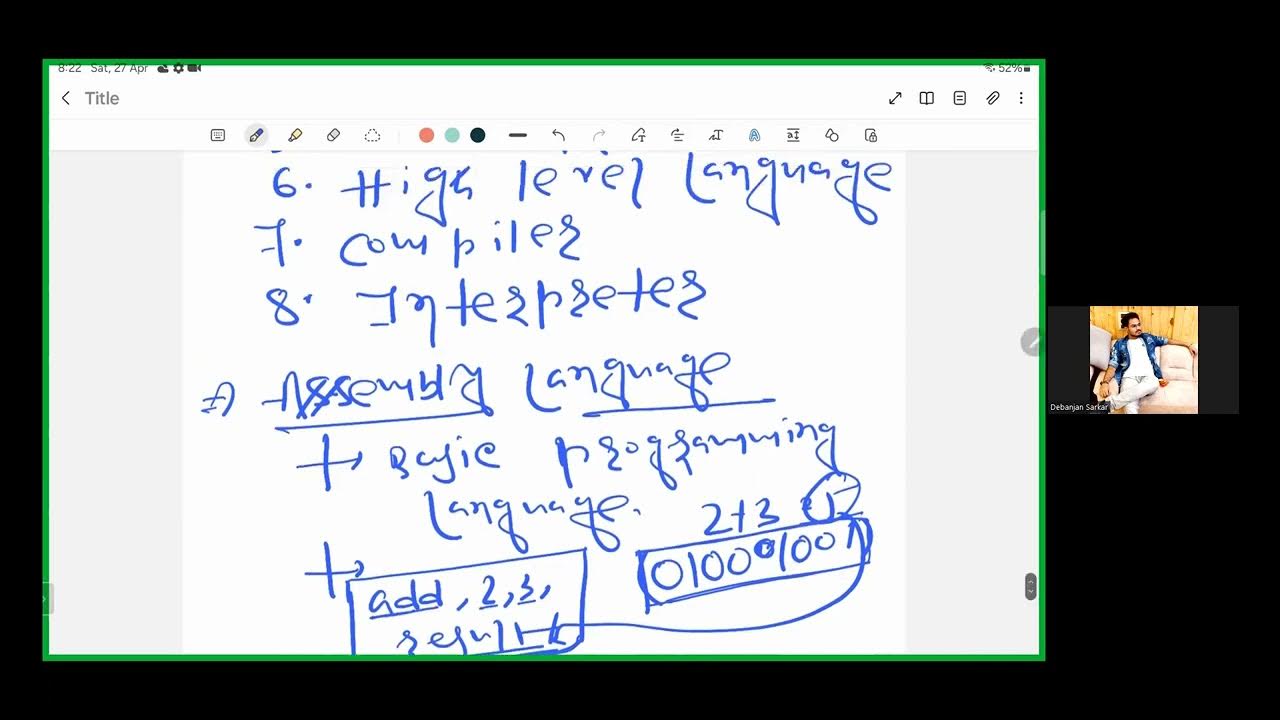 8:22 Sat, 27 Apr
52%
Title
6. High level Language
7. Compiler
8. Interpreter
Assembly Language
Basic programming
Language.
2+3
add, 2,3,
result
Debanjan Sarkar